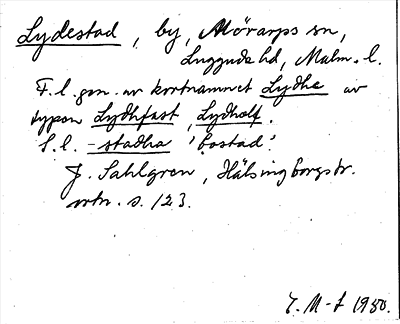 Lydestad, by, Mörarps sn,
Luggude hd, Malm. l.
F. l. gen. av kortnamnet Lydhe av
typen Lydhfast, Lydholf.
S. l. -stadha 'bostad'.
J. Sahlgren, Hälsingborgstr.
ortn. s. 123.
1980.